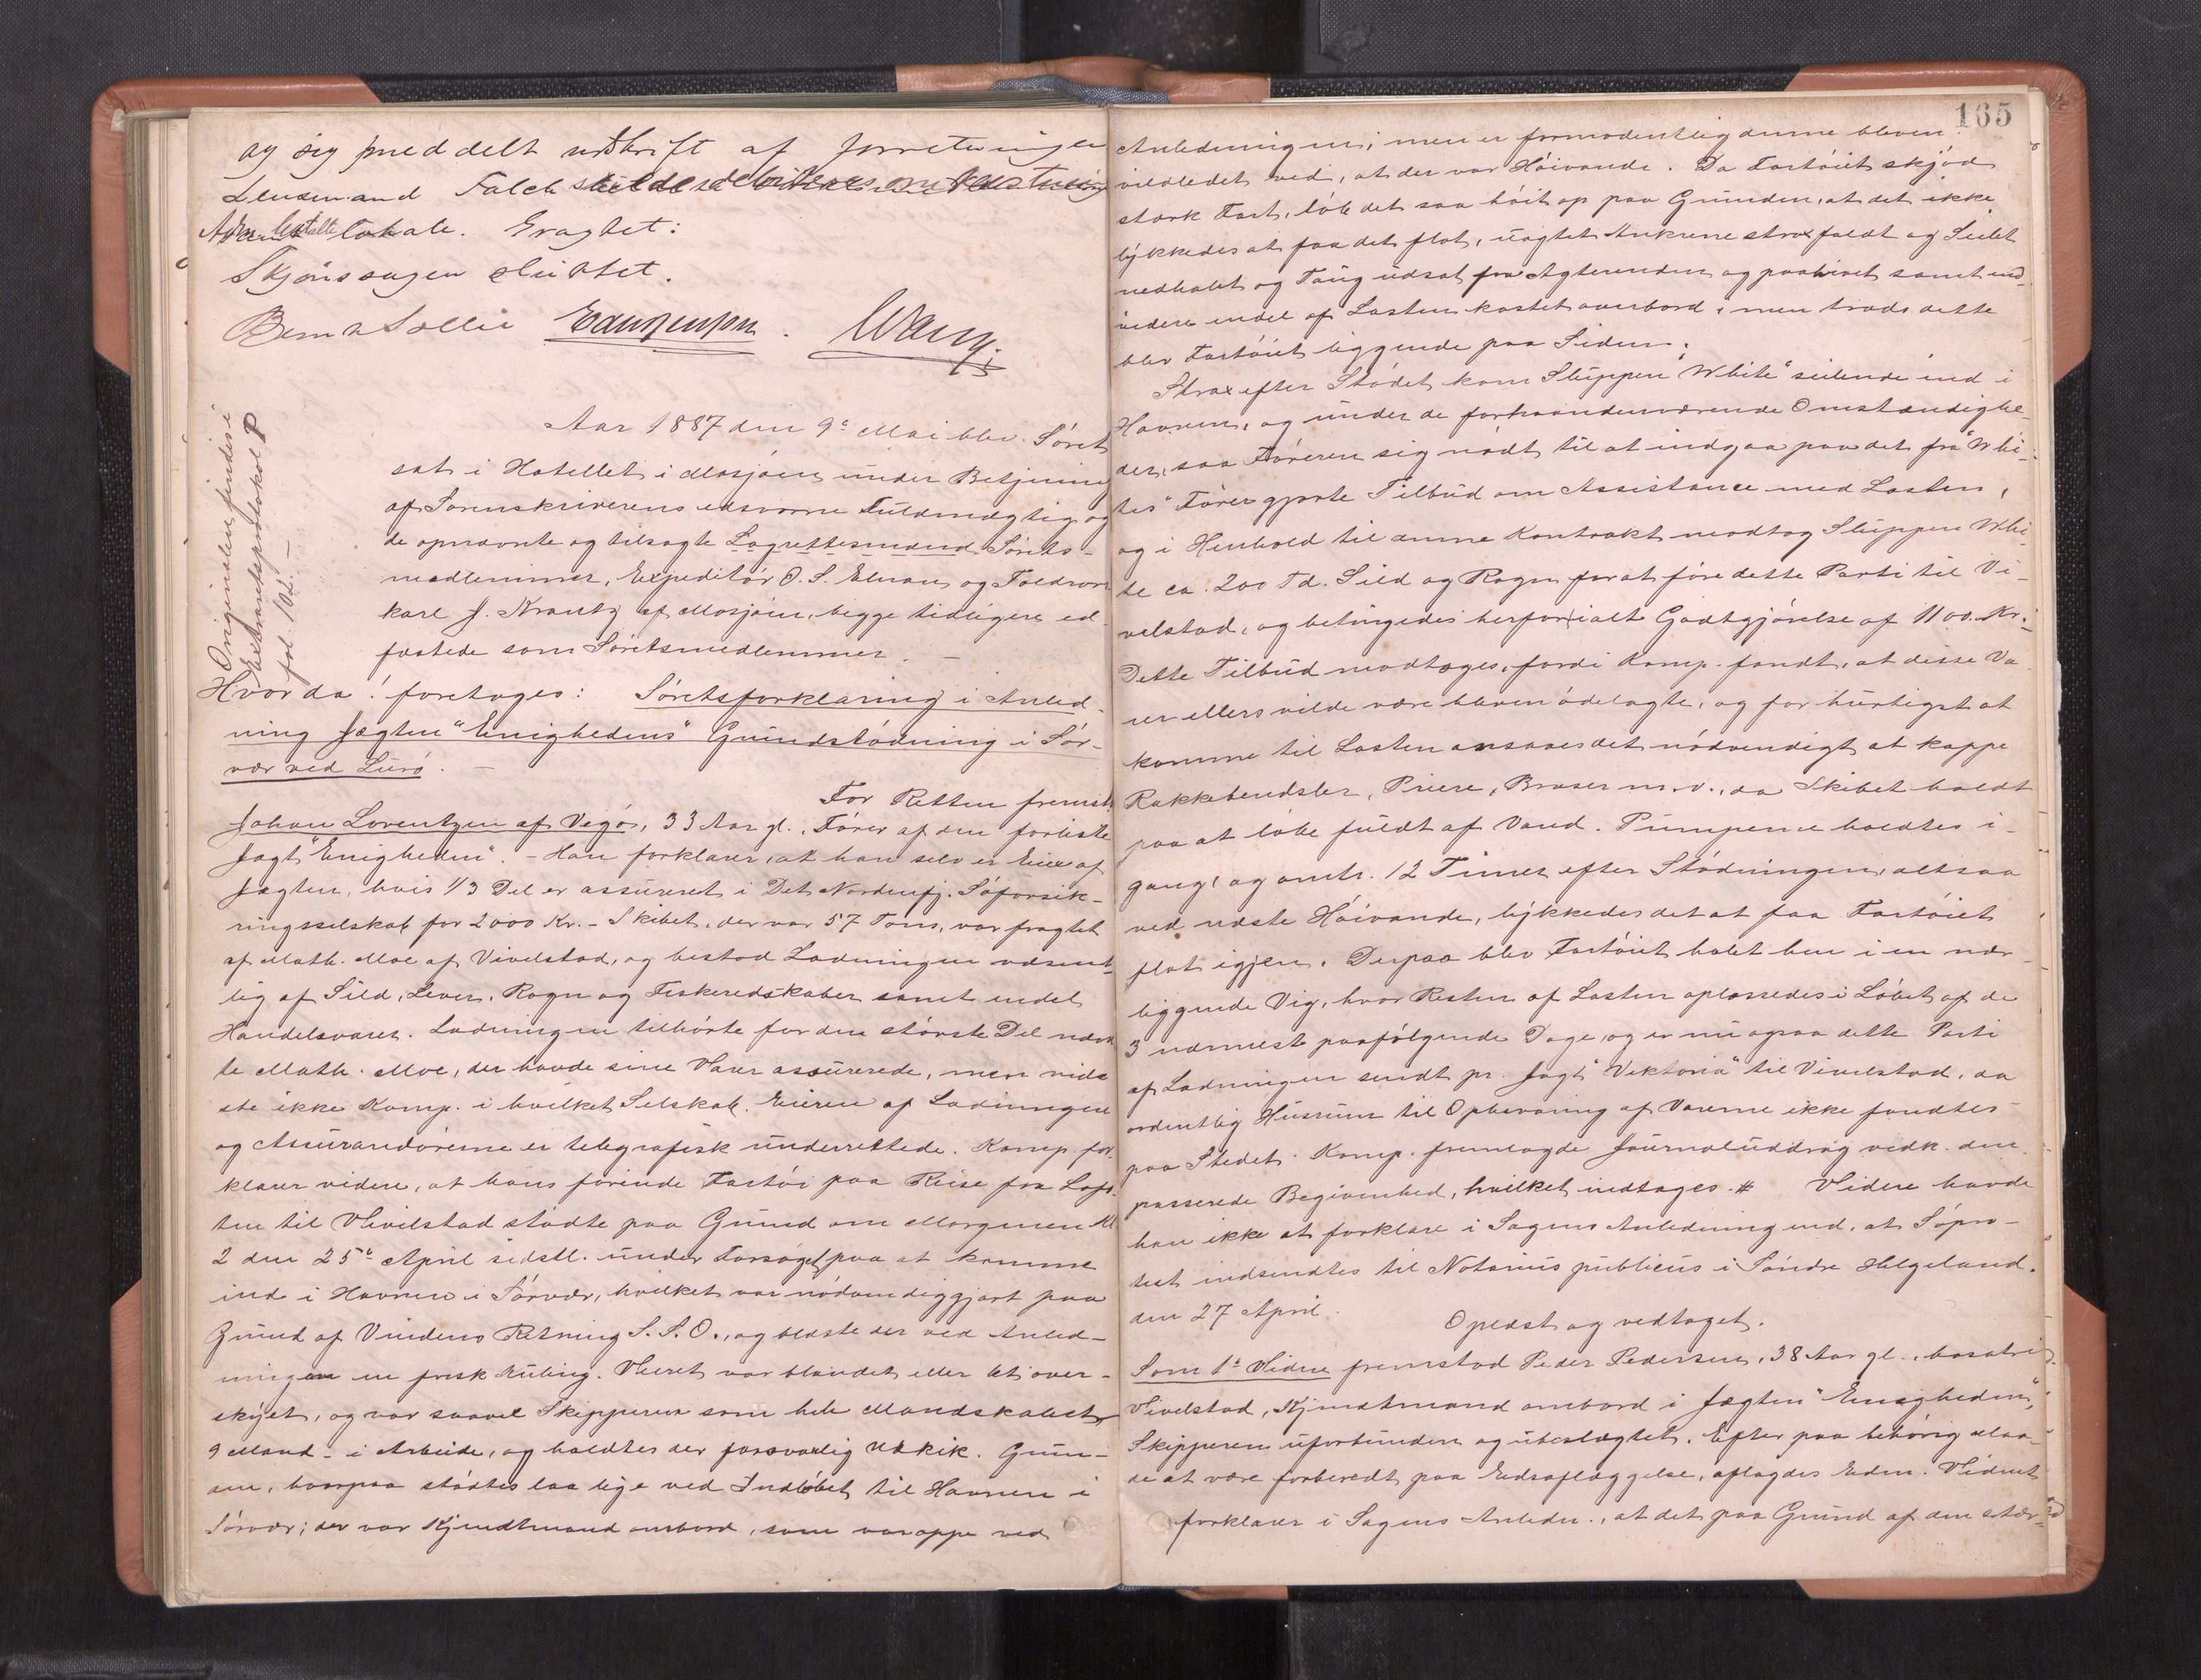 og sig meddelt udskrift af forretningen
Lensmand Falch
lokale. Eragtet:
Skjønssagen sluttet.
Bernt Sollie
Originalen findes i
Extraretsprotokol P
fol. 102. —
Aar 1887 den 9de Mai blev Søret
sat i Hotellet i Mosjøen under Betjening
af Sorenskriverens edsvorne Fuldmægtig og
de opnævnte og tilsagte Lagrettesmænd Sørets-
medlemmer, Expeditør O. S. Elnan og Foldrors
karl J. Krantz af Mosjøen, begge tidligere ed-
fæstede som Søretsmedlemmer. —
Hvorda! foretoges: Søretsforklaring i Anled-
ning Jægten "Enighedens" Grundstødning i Sør-
vær ved Lurø. —
For Retten fremst.
Johan Lorentzen af Vegø, 33 Aar gl., Fører af den forliste
Jagt "Enigheden". - Han forklarer, at han selv er Eier af
Jægten, hvis 1/3 Del er assureret i Det Nordenfj. Søforsik-
ringsselskab for 2000 Kr. - Skibet, der var 57 Tons, var fragtet
af Math. Moe af Vivelstad, og bestod Ladningen væsent-
lig af Sild, Lever, Rogn og Fiskeredskaber samt endel
Handelsvarer. Ladningen tilhørte for den største Del nævn
te Math. Moe, der havde sine Varer assurerede, men vid-
ste ikke Komp. i hvilket Selskab. Eieren af Ladningen
og Assurandørerne er telegrafisk underrettede. Komp. for-
klarer videre, at hans førende Fartøi paa Reise fra Lofo-
ten til Vivelstad stødte paa Grund om Morgenen Kl
2 den 25de April sidstl. under Forsøget paa at komme
ind i Havnen i Sørvær, hvilket var nødvendiggjort paa
Grund af Vindens Retning S.S.O., og blæste der ved Anled-
ningen en frisk Kuling. Veiret var blandet eller let over-
skyet, og var saavel Skipperen som hele Mandskabet
9 Mand - i Arbeide, og holdtes der forsvarlig Udkik. Grun-
den, hvorpaa stødtes laa lige ved Indløbet til Havnen i
Sørvær; der var Kjendtmand ombord, som var oppe ved
165
Anledningen; men er formodentlig denne bleven
vildledet ved, at der var Høivande. Da Fartøiet skjød
stærk Fart, løb det saa høit op paa Grunden, at det ikke
lykkedes at faa det flot, uagtet Ankrene strax faldt og Seilet
nedhalet og Toug udsat fra Agterenden og paahivet samt end-
videre endel af Lasten kastet overbord; men trods dette
blev Fartøiet liggende paa Siden.
Strax efter Stødet kom Sluppen "White" seilende ind i
Havnen, og under de forhaandenværende Omstændighe-
der, saa Føreren sig nødt til at indgaa paa det fra "Whi-
tes" Fører gjorte Tilbud om Assistance med Lasten,
og i Henhold til denne Kontrakt modtog Sluppen Whi-
te ca. 200 Td. Sild og Rogn for at føre dette Parti til Vi-
velstad, og betingedes herfor ialt Godtgjørelse af 1100 Kr.
Dette Tilbud modtoges, fordi Komp. fandt, at disse Va-
rer ellers vilde være bleven ødelagte, og for hurtigst at
komme til Lasten ansaaes det nødvendigt at kappe
Rakkebendsler, Priere, Braser m.v., da Skibet holdt
paa at løbe fuldt af Vand. Pumperne holdtes i-
gang, og omtr. 12 Timer efter Stødningen, altsaa
ved næste Høivande, lykkedes det at faa Fartøiet
flot igjen. Derpaa blev Fartøiet halet hen i en nær-
liggende Vig, hvor Resten af Lasten oplossedes i Løbet af de
3 nærmest paafølgende Dage, og er nu ogsaa dette Parti
af Ladningen sendt pr. Jagt "Viktoria" til Vivelstad, da
ordentlig Husrum til Opbevaring af Varerne ikke fandtes
paa Stedet. Komp. fremlagde Journaluddrag vedk. den
passerede Begivenhed, hvilket indtages. # Videre havde
han ikke at forklare i Sagens Anledning end, at Søpro-
test indsendtes til Notarius publicus i Søndre Helgeland.
den 27 April.
Oplæst og vedtaget.
Som 1ste Vidne fremstod Peder Pedersen, 38 Aar gl., bosat i
Vivelstad, Kjendtmand ombord i Jægten "Enigheden",
Skipperen uforbunden og ubeslægtet. Efter paa behørig Maa-
de at være forberedt paa Edsaflæggelse, aflagdes Eden. Vidnet
forklarer i Sagens Anledn., at det paa Grund af den stær-